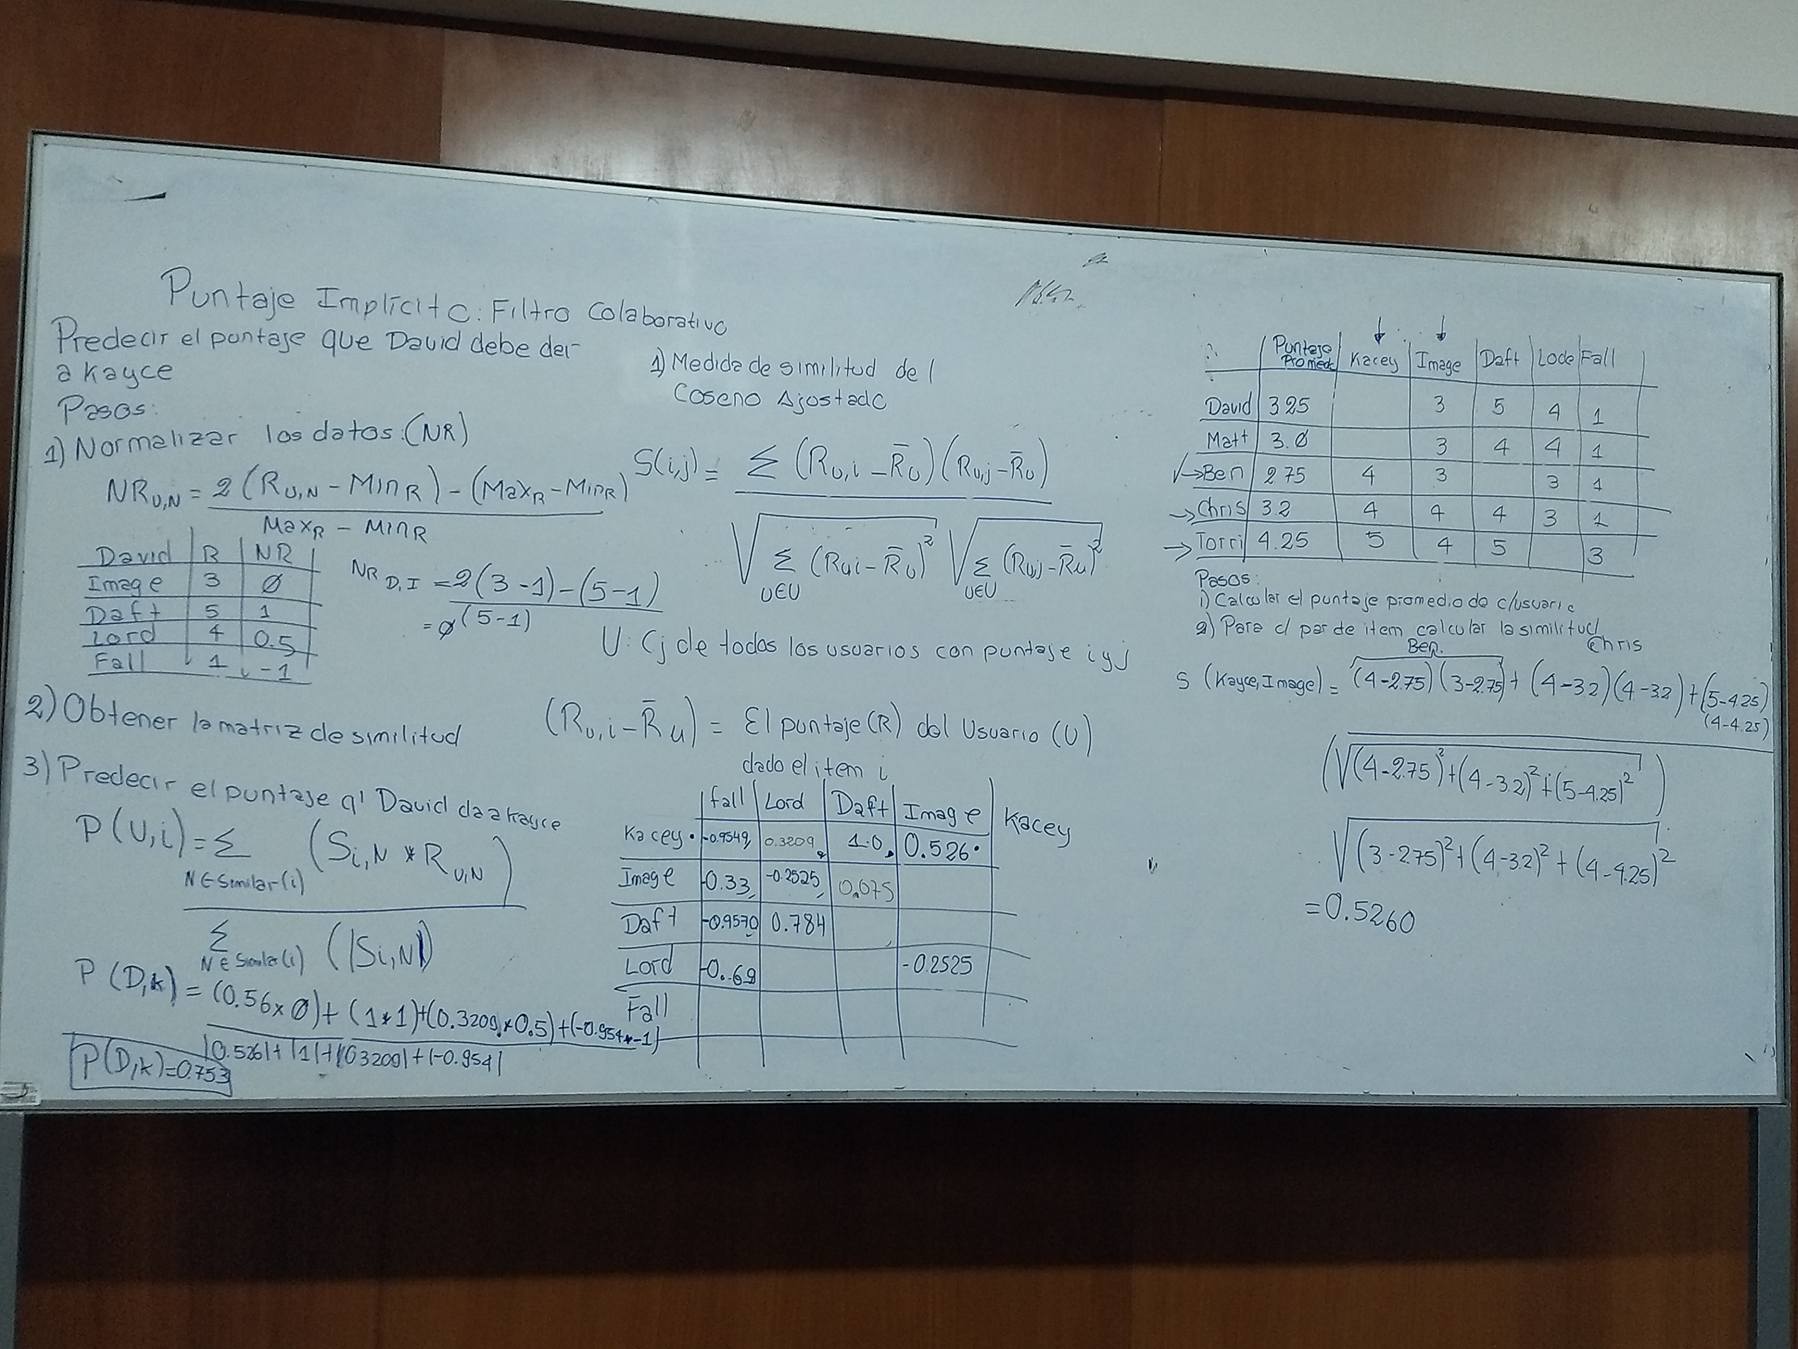 Puntaje Implícito: Filtro Colaborativo
Predecir el puntaje que David debe der
a Kayce
Pasos:
1) Normalizar los datos: (NR)
NR_{U,N} = 2(R_{U,N} - Min_R) - (Max_R - Min_R)
Max_R - Min_R
David | R | NR
Image | 3 | ∅
Daft | 5 | 1
Lord | 4 | 0.5
Fall | 1 | -1
NR_{D,I} = 2(3-1)-(5-1)
(5-1)
= ∅
2) Obtener la matriz de similitud
3) Predecir el puntaje q' David da a kayce
P(U,i) = Σ (S_{i,N} * R_{U,N})
N ∈ Similar(i)
Σ (|S_{i,N}|)
N ∈ Similar(i)
P(D,k) = (0.56×∅)+(1*1)+(0.3209*0.5)+(-0.954*-1)
|0.526|+|1|+|0.3209|+|-0.954|
P(D,k)=0.753
1) Medida de similitud del
Coseno Ajustado
S(i,j) = Σ (R_{U,i} - R̄_U)(R_{U,j} - R̄_U)
√Σ (R_{Ui} - R̄_U)² √Σ (R_{Uj} - R̄_U)²
U∈U U∈U
U: Cj de todos los usuarios con puntaje i y j
(R_{U,i} - R̄_U) = El puntaje (R) del Usuario (U)
dado el item i
fall | Lord | Daft | Image | Kacey
Kacey | -0.9549 | 0.3209 | 1.0 | 0.526
Image | -0.33 | -0.2525 | 0.075
Daft | -0.9570 | 0.784
Lord | -0.69 | -0.2525
Fall
Puntaje Promed | Kacey | Image | Daft | Lode | Fall
David | 3.25 | | 3 | 5 | 4 | 1
Matt | 3.∅ | | 3 | 4 | 4 | 1
→Ben | 2.75 | 4 | 3 | | 3 | 1
→Chris | 3.2 | 4 | 4 | 4 | 3 | 1
→Torri | 4.25 | 5 | 4 | 5 | | 3
Pasos:
1) Calcular el puntaje promedio de c/usuario
2) Para c/ par de item calcular la similitud
Ben. Chris
S (Kayce, Image) = (4-2.75)(3-2.75)+(4-3.2)(4-3.2)+(5-4.25)
(4-4.25)
(√(4-2.75)²+(4-3.2)²+(5-4.25)²)
√(3-2.75)²+(4-3.2)²+(4-4.25)²
=0.5260